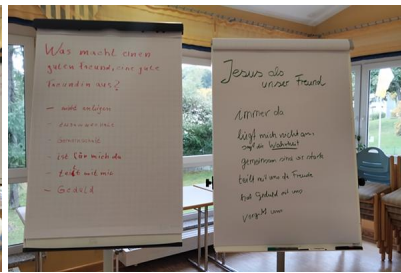 Was macht einen
guten Freund, eine gute
Freundin aus?
- nicht
-
-
- ist für mich da
- teilt mit mir
- Geduld
Jesus als
unser Freund
immer da
lügt mich nicht an
sagt die Wahrheit
gemeinsam sind wir stark
teilt mit uns die Freude
hat Geduld mit uns
vergibt uns